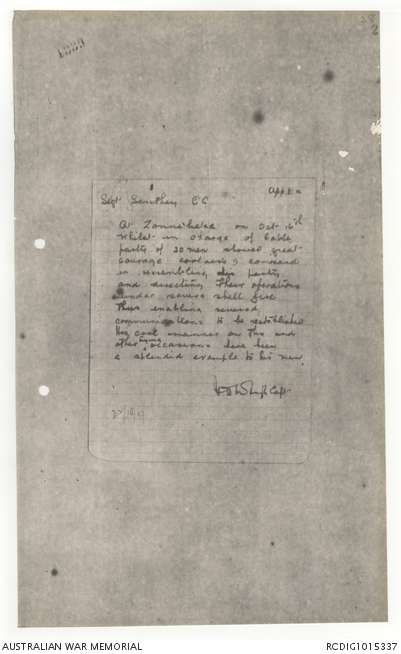 Appx
Sgt E C
At Zonnebeke on Oct 16th
whilst in charge of Cable
party of 20 men showed great
courage coolness & command
in assembling his party
and directing their operations
under severe shell fire
thus enabling
communications to be established
His cool manner on this and
other occasions have been
a splendid example to his men
Capt
AUSTRALIAN WAR MEMORIAL
RCDIG1015337